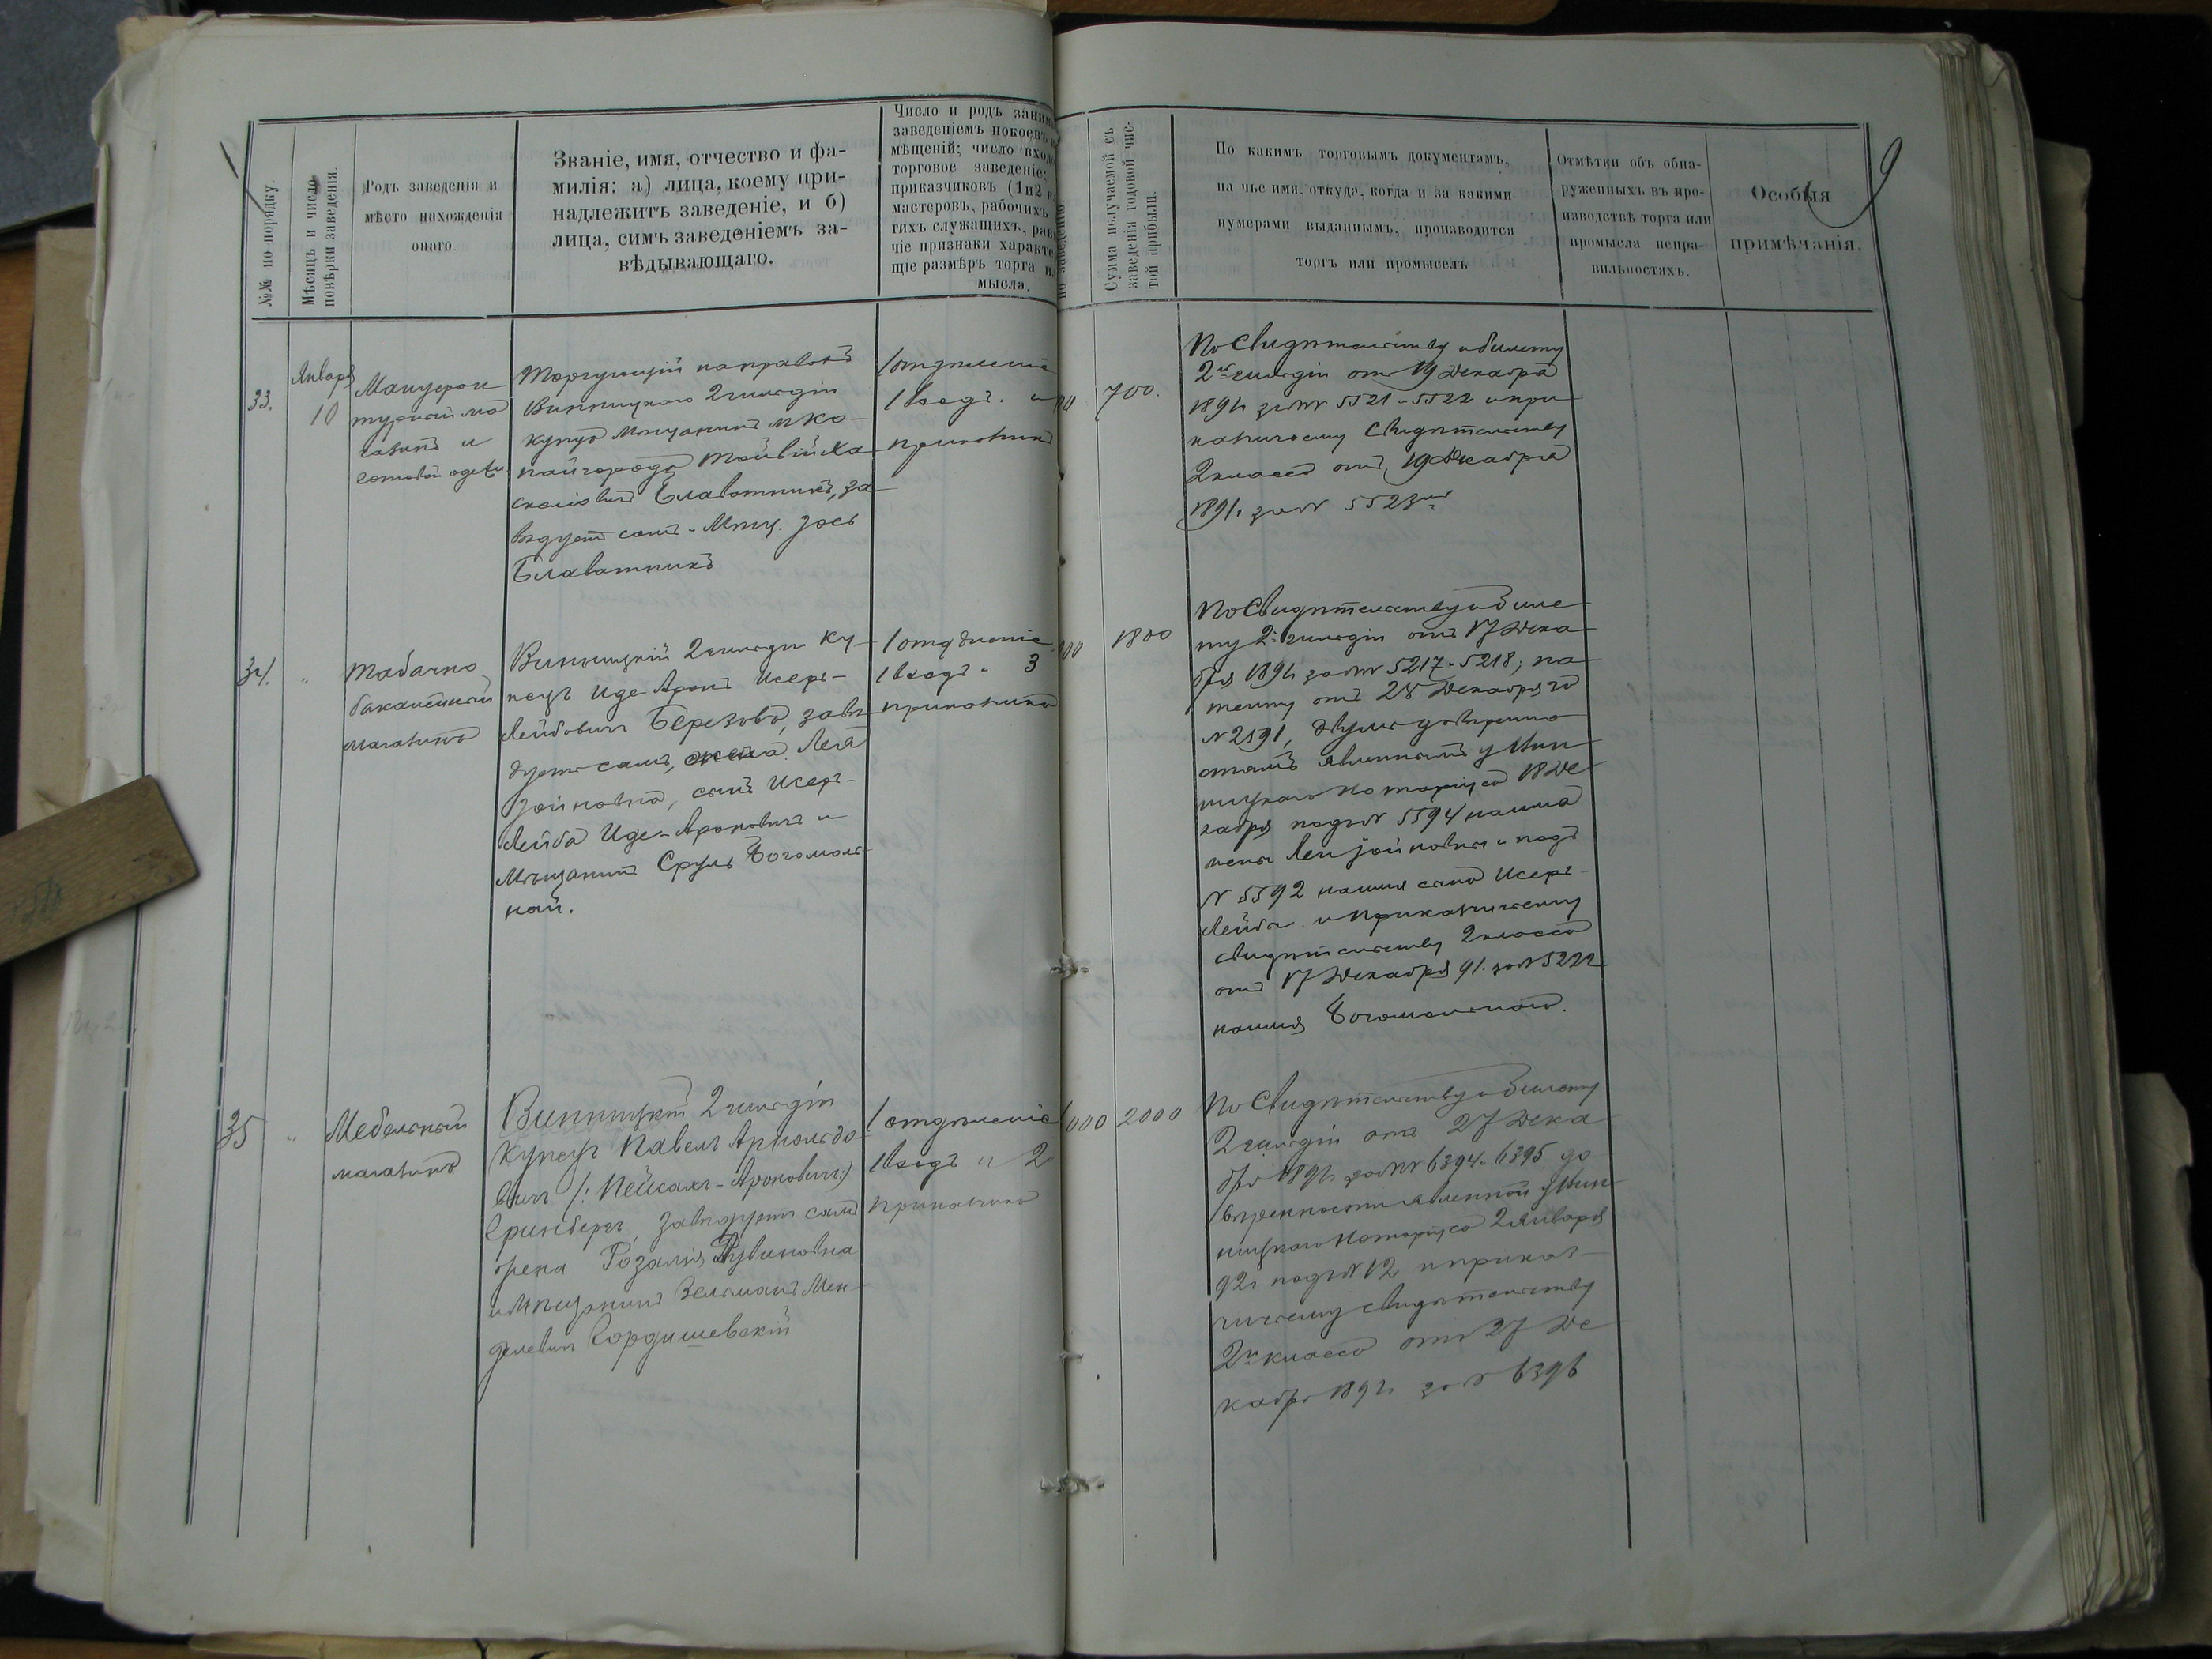 №№ по порядку.
Мѣсяцъ и число
повѣрки заведенія.
Родъ заведенія и
мѣсто нахожденія
онаго.
Званіе, имя, отчество и фа-
милія: а) лица, коему при-
надлежитъ заведеніе, и б)
лица, симъ заведеніемъ за-
вѣдывающаго.
Число и родъ заним
заведеніемъ покоевъ и
мѣщеній; число входо
торговое заведеніе;
приказчиковъ (1 и 2 к
мастеровъ, рабочихъ
гихъ служащихъ, рав
чіе признаки характе
щіе размѣръ торга и
мысла.
по заведенію
Сумма получаемой съ
заведенія годовой чис-
той прибыли.
По какимъ торговымъ документамъ,
на чье имя, откуда, когда и за какими
нумерами выданнымъ, производится
торгъ или промыселъ
Отмѣтки объ обна-
руженныхъ въ про-
изводствѣ торга или
промысла непра-
вильностяхъ.
Особыя
примѣчанія.
9
33.
Января
10
Мануфак
турный ма
газинъ и
готовой одежи
Торгующій на правахъ
Винницкаго 2 гильдіи
купца Мѣщанинъ м Ко-
пайгорода Тойвій Ха
скеліовичъ Блаватникъ, за
вѣдуетъ самъ и Мѣщ. Зось
Блаватникъ
1 отдѣленіе
1 входъ. и
прикащикъ
00
700.
По Свидѣтельству и билету
2й гильдіи отъ 19 Декабря
1891г за №№ 5521 и 5522 и при
кащичьему Свидѣтельству
2 класса отъ 19 Декабря
1891г за № 5523мъ
34.
"
Табачно
бакалейный
магазинъ
Винницкій 2 гильдіи ку-
пецъ Иде-Аронъ Исеръ-
Лейбовичъ Березовъ, завѣ
дуетъ самъ, жена Лея
Зойновна, сынъ Исеръ-
Лейба Иде-Ароновичъ и
Мѣщанинъ Сруль Богомоль-
ной.
1 отдѣленіе
1 входъ и 3
прикащика
00
1800
По Свидѣтельству и биле
ту 2й гильдіи отъ 17 Дека
бря 1891г за №№ 5217 и 5218; па
тенту отъ 28 Декабря за
№ 2191, двумъ довѣренно
стямъ явленнымъ у Вин
ницкаго Нотаріуса 18 Де
кабря подъ № 5594 на имя
жены Леи Зойновны и подъ
№ 5592 на имя сына Исеръ-
Лейба и прикащичьему
свидѣтельству 2 класса
отъ 17 Декабря 91. за № 5222
на имя Богомольнаго.
35
"
Мебельный
магазинъ
Винницкій 2 гильдіи
Купецъ Павелъ Арнольдо-
вичъ /: Пейсахъ-Ароновичъ:/
Гринбергъ, завѣдуетъ самъ
жена Розалія Рувиновна
и Мѣщанинъ Зельманъ Мен-
делевичъ Сордишевскій
1 отдѣленіе
1 входъ и 2
прикащика
000
2000
По Свидѣтельству и билету
2 гильдіи отъ 27 Дека
бря 1891г за №№ 6394 и 6395 до
вѣренности явленной у Вин
ницкаго Нотаріуса 2 Января
92г подъ № 12 и прикаш-
чичьему свидѣтельству
2го класса отъ 27 Де
кабря 1891г за № 6396